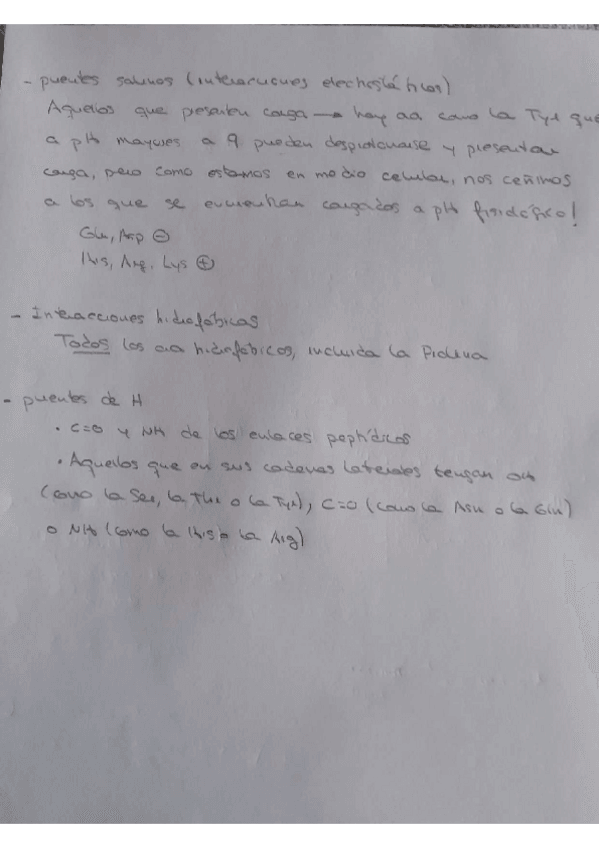 - puentes salinos (interacciones electrostáticas)
Aquellos que presenten carga → hay aa como la Tyr que
a pH mayores a 9 pueden desprotonarse y presentar
carga, pero como estamos en medio celular, nos ceñimos
a los que se encuentran cargados a pH fisiológico!
Glu, Asp ⊖
His, Arg, Lys ⊕
- Interacciones hidrofóbicas
Todos los aa hidrofóbicos, incluida la Prolina
- puentes de H
• C=O y NH de los enlaces peptídicos
• Aquellos que en sus cadenas laterales tengan OH
(como la Ser, la Thr o la Tyr), C=O (como la Asn o la Gln)
o NH (como la His o la Arg)